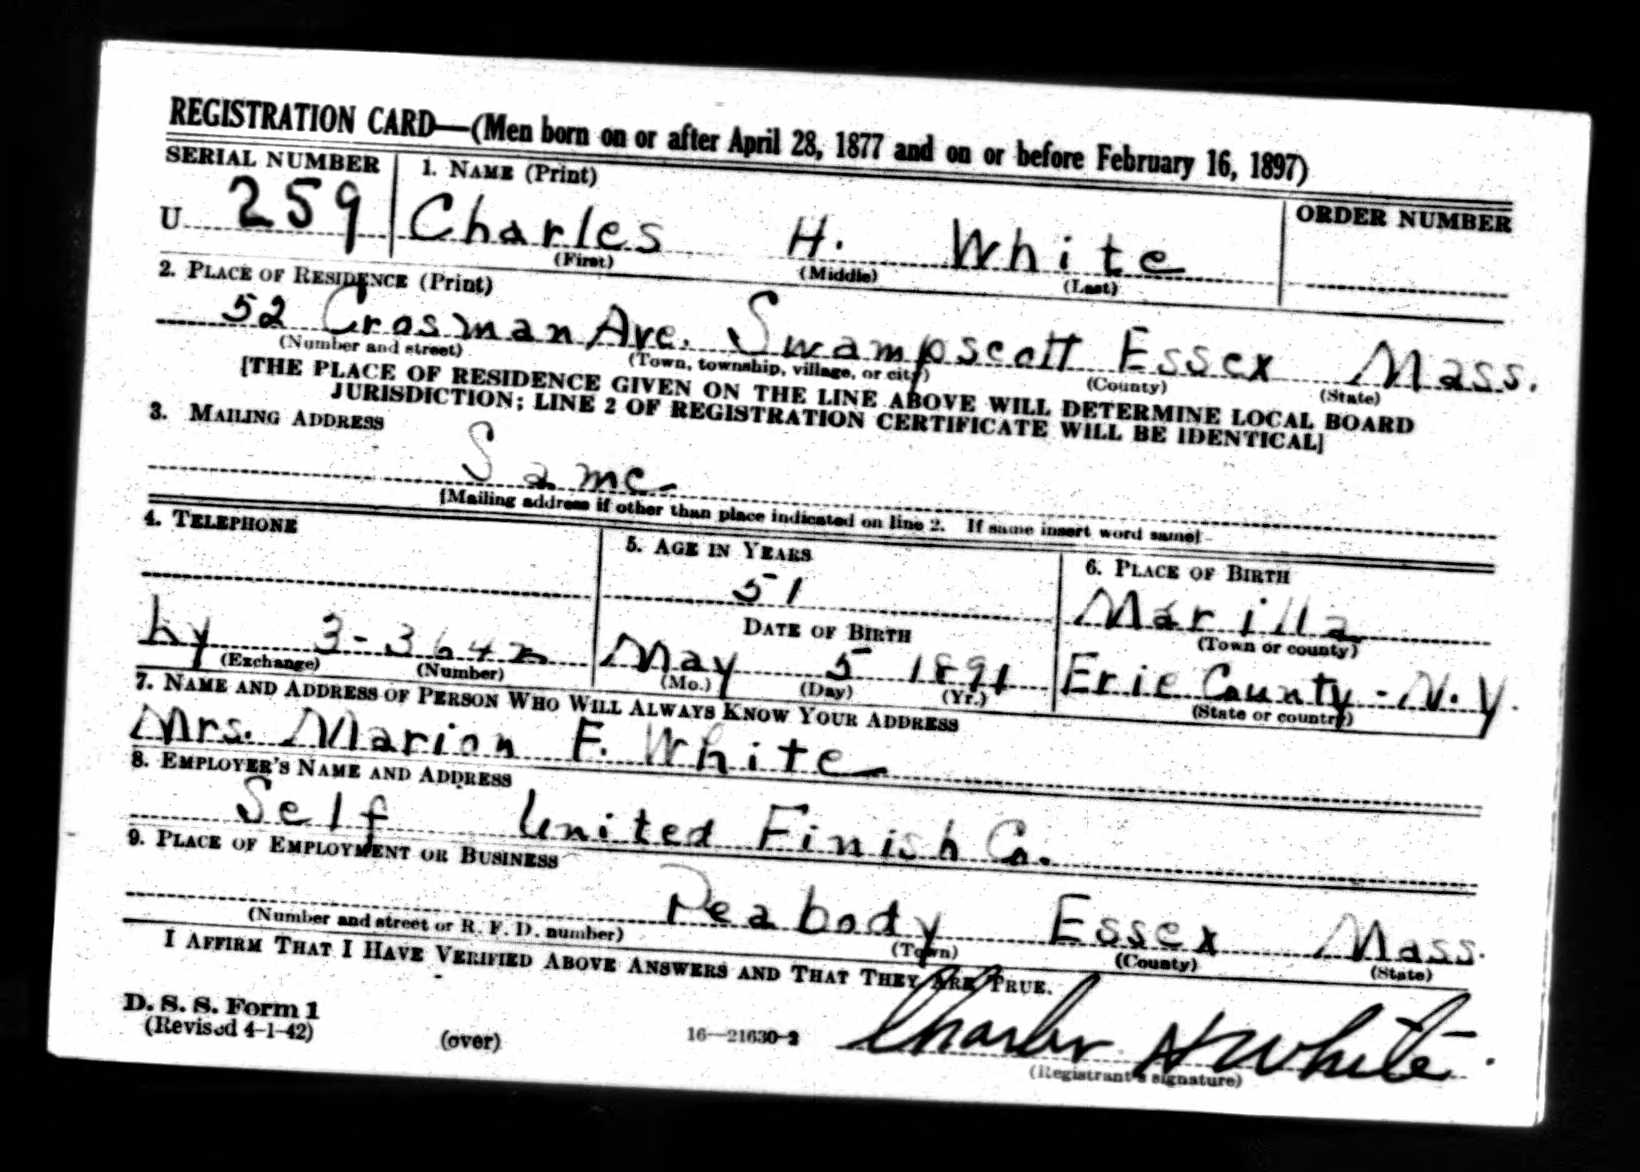 REGISTRATION CARD—(Men born on or after April 28, 1877 and on or before February 16, 1897)
SERIAL NUMBER 1. NAME (Print) ORDER NUMBER
U 259 Charles H. White
(First) (Middle) (Last)
2. PLACE OF RESIDENCE (Print)
52 Crosman Ave. Swampscott Essex Mass.
(Number and street) (Town, township, village, or city) (County) (State)
[THE PLACE OF RESIDENCE GIVEN ON THE LINE ABOVE WILL DETERMINE LOCAL BOARD
JURISDICTION; LINE 2 OF REGISTRATION CERTIFICATE WILL BE IDENTICAL]
3. MAILING ADDRESS
Same
[Mailing address if other than place indicated on line 2. If same insert word same]
4. TELEPHONE 5. AGE IN YEARS 6. PLACE OF BIRTH
51 Marilla
DATE OF BIRTH (Town or county)
Ly 3-3642 May 5 1891 Erie County - N.Y.
(Exchange) (Number) (Mo.) (Day) (Yr.) (State or country)
7. NAME AND ADDRESS OF PERSON WHO WILL ALWAYS KNOW YOUR ADDRESS
Mrs. Marion F. White
8. EMPLOYER'S NAME AND ADDRESS
Self United Finish Co.
9. PLACE OF EMPLOYMENT OR BUSINESS
Peabody Essex Mass.
(Number and street or R. F. D. number) (Town) (County) (State)
I AFFIRM THAT I HAVE VERIFIED ABOVE ANSWERS AND THAT THEY ARE TRUE.
D. S. S. Form 1
(Revised 4-1-42) (over) 16—21630-2 Charles H White
(Registrant's signature)